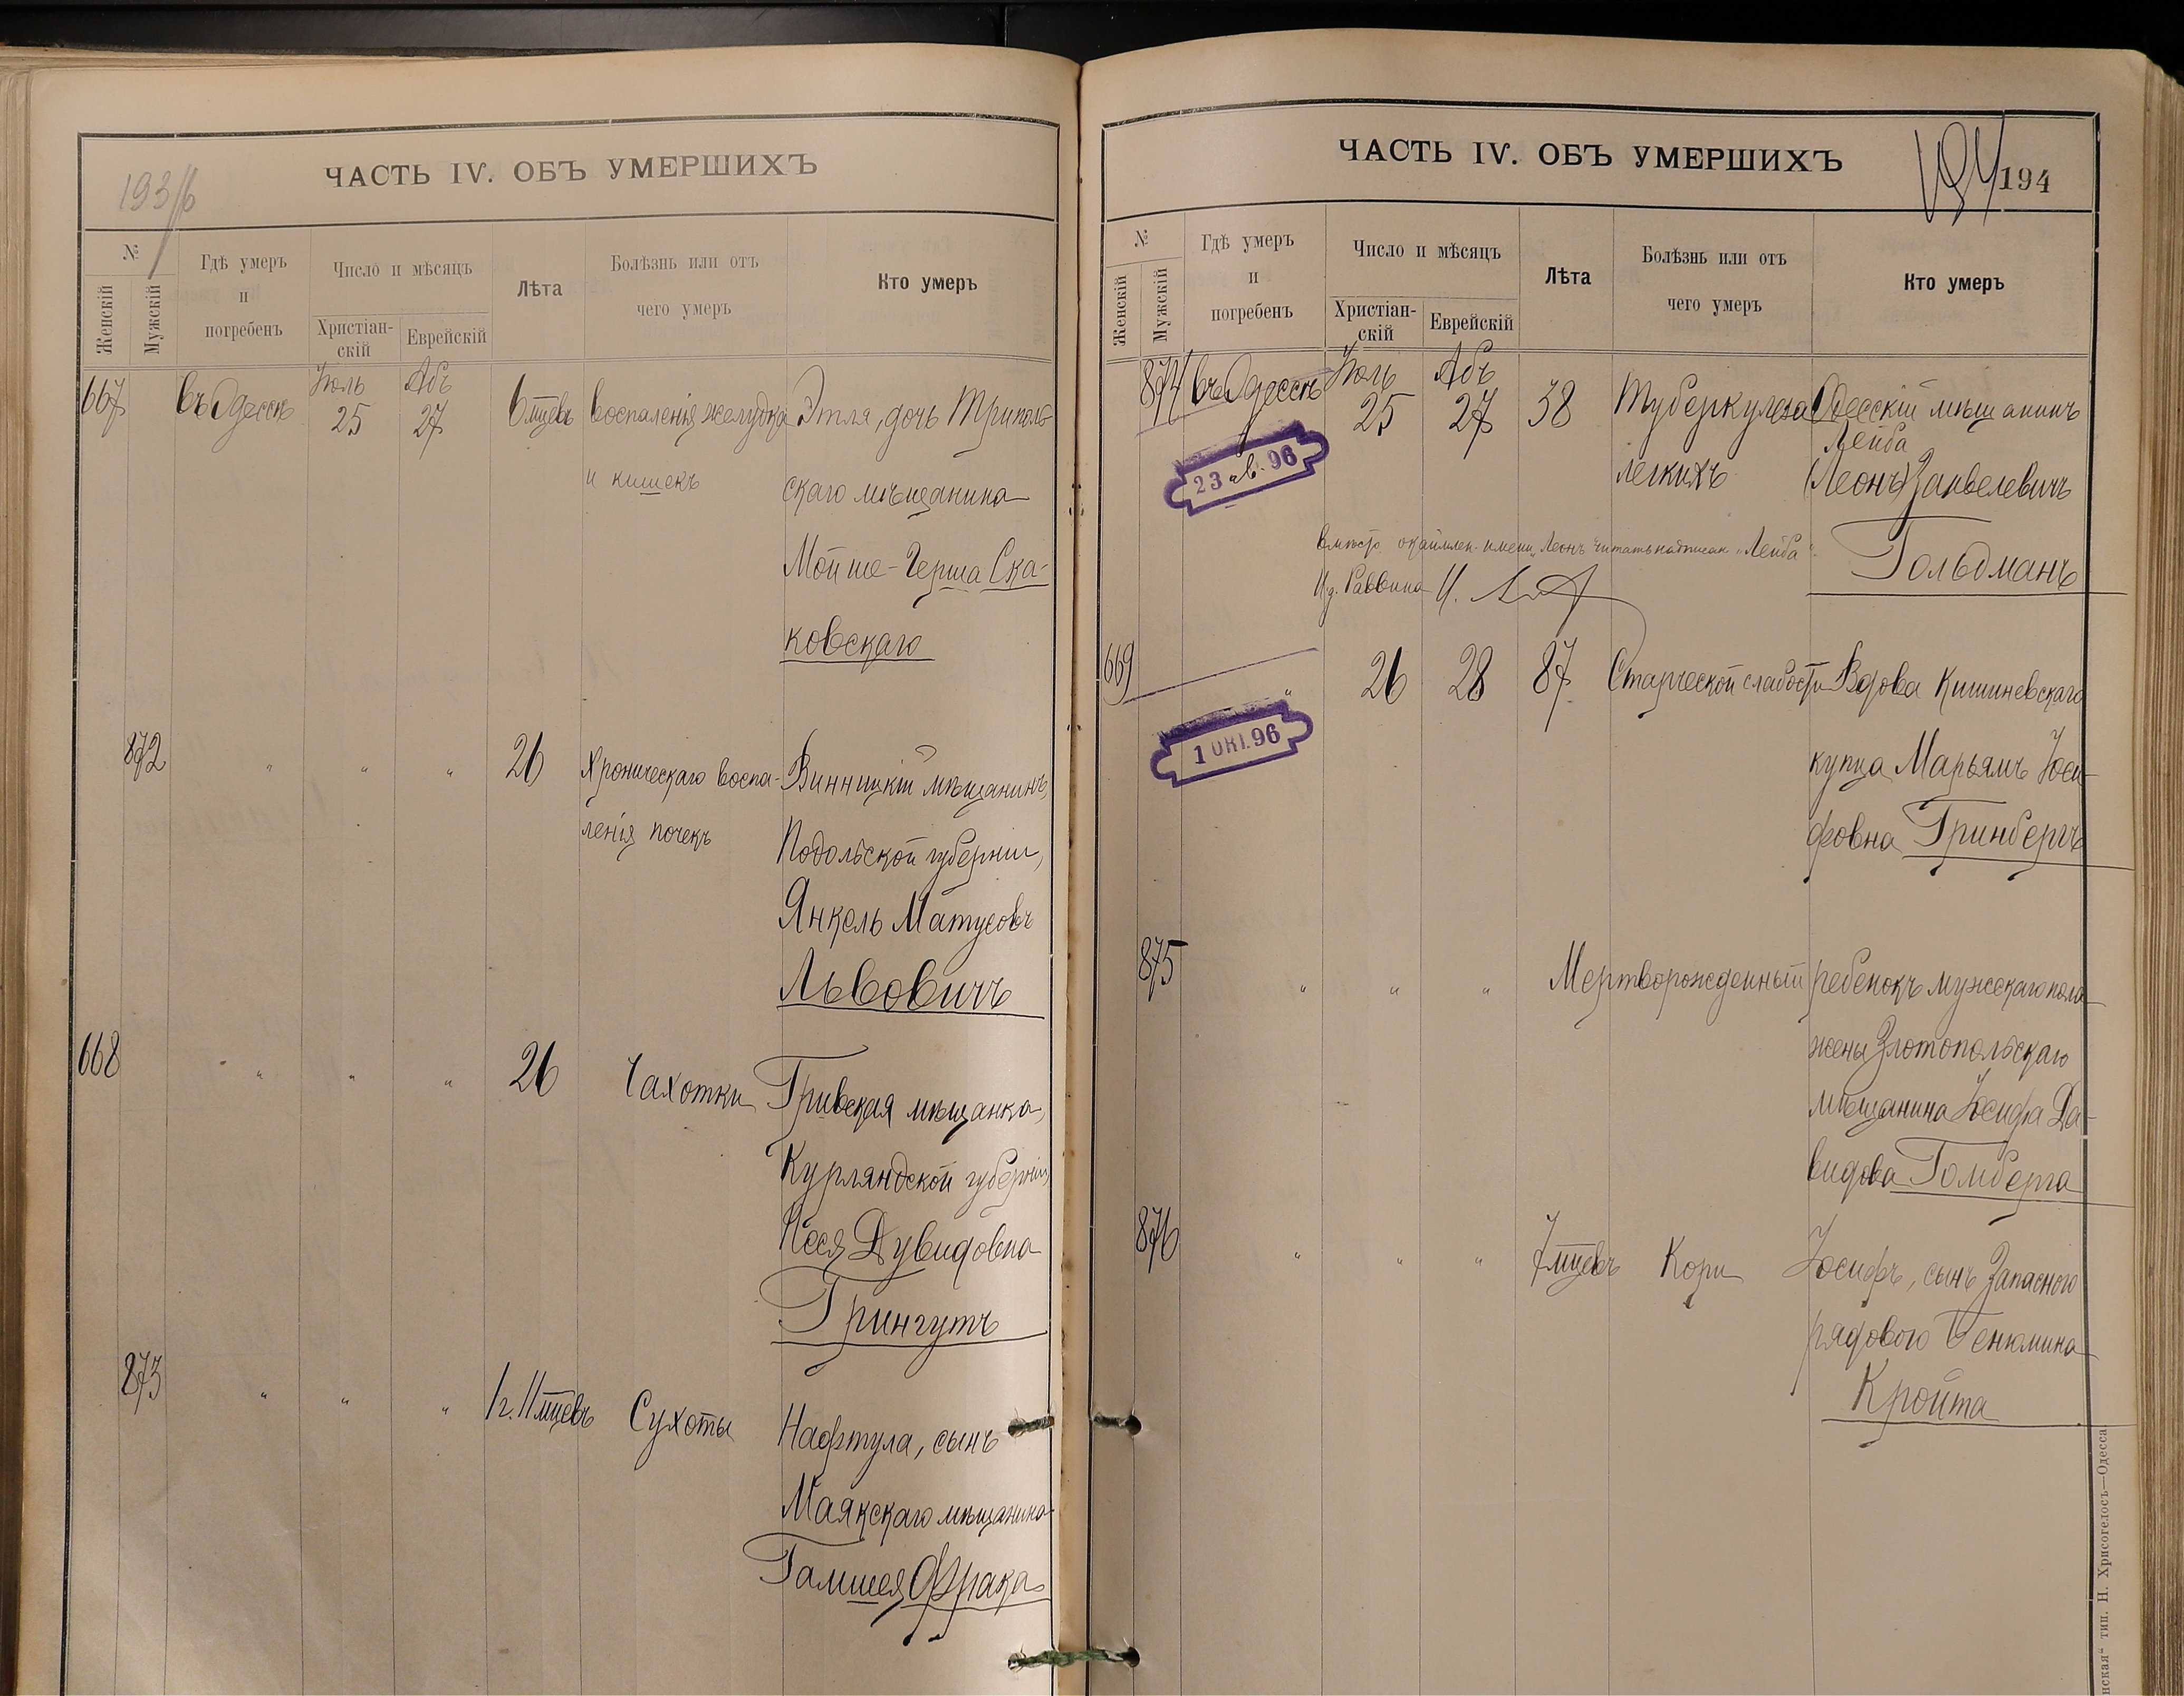 193 об
ЧАСТЬ IV. ОБЪ УМЕРШИХЪ
№
Женскій
Мужскій
Гдѣ умеръ
и
погребенъ
Число и мѣсяцъ
Христіан-
скій
Еврейскій
Лѣта
Болѣзнь или отъ
чего умеръ
Кто умеръ
Іюль Абъ
667 въ Одессѣ 25 27 6 мцевъ воспаленія желудка Этля, дочь Триполь-
и кишекъ скаго мѣщанина
Мойше-Герша Ска-
ковскаго
872 " " " 26 Хроническаго воспа- Винницкій мѣщанинъ,
ленія почекъ Подольской губерніи,
Янкель Матусовъ
Львовичъ
668 " " " 26 Чахотки Гривская мѣщанка,
Курляндской губерніи,
Песя Дувидовна
Грингутъ
873 " " " 1 г. 11 мцевъ Сухоты Нафтула, сынъ
Маякскаго мѣщанина
Гамшея Фрака
ЧАСТЬ IV. ОБЪ УМЕРШИХЪ
194 194
№
Женскій
Мужскій
Гдѣ умеръ
и
погребенъ
Число и мѣсяцъ
Христіан-
скій
Еврейскій
Лѣта
Болѣзнь или отъ
чего умеръ
Кто умеръ
Іюль Абъ
874 въ Одессѣ 25 27 38 Туберкулеза Одесскій мѣщанинъ
Лейба
легкихъ (Леонъ) Занвелевичъ
23 ав. 96
Гольдманъ
Вмѣсто окаймлен. имени „Леонъ" читать надписан. „Лейба".
И. д. Раввина
669 " 26 28 87 Старческой слабости Вдова Кишиневскаго
1 ОКТ. 96
купца Марьямъ Іоси-
фовна Гринбергъ
875 " " " Мертворожденный ребенокъ мужскаго пола
жены Златопольскаго
мѣщанина Іосифа Да-
видова Гомберга
876 " " " 7 мцевъ Кори Іосифъ, сынъ Запасного
рядового Бенюмина
Кройта
тип. Н. Хрисогелосъ—Одесса